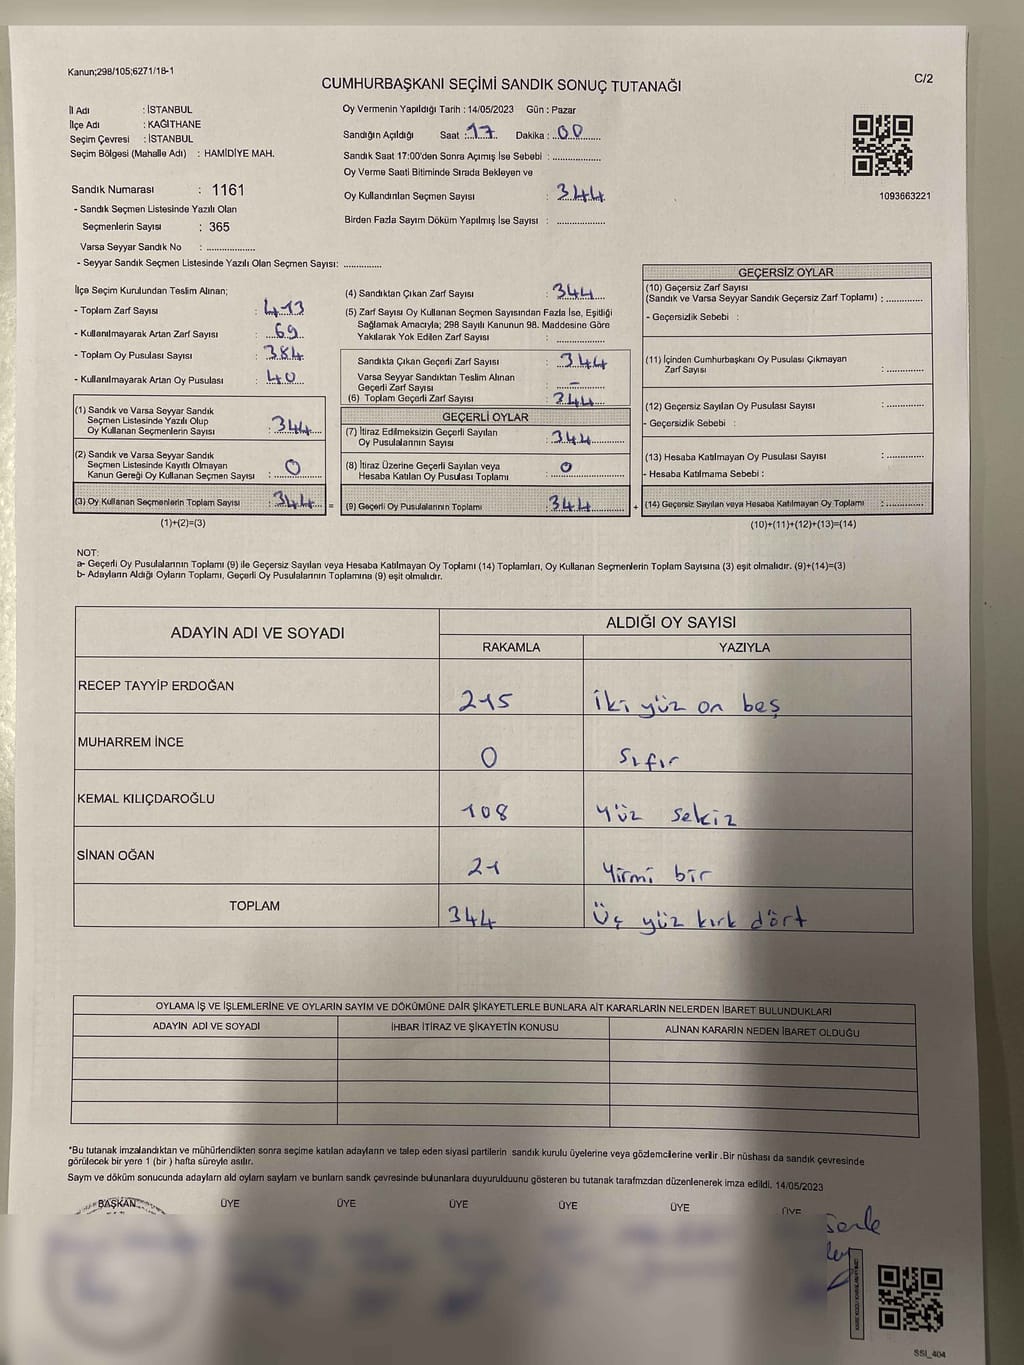 Kanun;298/105;6271/18-1
C/2
CUMHURBAŞKANI SEÇİMİ SANDIK SONUÇ TUTANAĞI
İl Adı : İSTANBUL
İlçe Adı : KAĞITHANE
Seçim Çevresi : İSTANBUL
Seçim Bölgesi (Mahalle Adı) : HAMİDİYE MAH.
Sandık Numarası : 1161
- Sandık Seçmen Listesinde Yazılı Olan
Seçmenlerin Sayısı : 365
Varsa Seyyar Sandık No : ..................
- Seyyar Sandık Seçmen Listesinde Yazılı Olan Seçmen Sayısı: ..............
Oy Vermenin Yapıldığı Tarih : 14/05/2023 Gün : Pazar
Sandığın Açıldığı Saat : 17 Dakika : 00
Sandık Saat 17:00'den Sonra Açımış İse Sebebi : ..................
Oy Verme Saati Bitiminde Sırada Bekleyen ve
Oy Kullandırılan Seçmen Sayısı : 344
Birden Fazla Sayım Döküm Yapılmış İse Sayısı : ..................
1093663221
İlçe Seçim Kurulundan Teslim Alınan;
- Toplam Zarf Sayısı : 413
- Kullanılmayarak Artan Zarf Sayısı : 69
- Toplam Oy Pusulası Sayısı : 384
- Kullanılmayarak Artan Oy Pusulası : 40
(1) Sandık ve Varsa Seyyar Sandık
Seçmen Listesinde Yazılı Olup
Oy Kullanan Seçmenlerin Sayısı : 344
(2) Sandık ve Varsa Seyyar Sandık
Seçmen Listesinde Kayıtlı Olmayan
Kanun Gereği Oy Kullanan Seçmen Sayısı : 0
(3) Oy Kullanan Seçmenlerin Toplam Sayısı : 344 =
(1)+(2)=(3)
(4) Sandıktan Çıkan Zarf Sayısı : 344
(5) Zarf Sayısı Oy Kullanan Seçmen Sayısından Fazla İse, Eşitliği
Sağlamak Amacıyla; 298 Sayılı Kanunun 98. Maddesine Göre
Yakılarak Yok Edilen Zarf Sayısı : ..................
Sandıkta Çıkan Geçerli Zarf Sayısı : 344
Varsa Seyyar Sandıktan Teslim Alınan
Geçerli Zarf Sayısı : -
(6) Toplam Geçerli Zarf Sayısı : 344
GEÇERLİ OYLAR
(7) İtiraz Edilmeksizin Geçerli Sayılan
Oy Pusulalarının Sayısı : 344
(8) İtiraz Üzerine Geçerli Sayılan veya
Hesaba Katılan Oy Pusulası Toplamı : 0
(9) Geçerli Oy Pusulalarının Toplamı : 344 +
GEÇERSİZ OYLAR
(10) Geçersiz Zarf Sayısı
(Sandık ve Varsa Seyyar Sandık Geçersiz Zarf Toplamı) : ..............
- Geçersizlik Sebebi :
(11) İçinden Cumhurbaşkanı Oy Pusulası Çıkmayan
Zarf Sayısı : ..............
(12) Geçersiz Sayılan Oy Pusulası Sayısı : ..............
- Geçersizlik Sebebi :
(13) Hesaba Katılmayan Oy Pusulası Sayısı : ..............
- Hesaba Katılmama Sebebi :
(14) Geçersiz Sayılan veya Hesaba Katılmayan Oy Toplamı : ..............
(10)+(11)+(12)+(13)=(14)
NOT:
a- Geçerli Oy Pusulalarının Toplamı (9) ile Geçersiz Sayılan veya Hesaba Katılmayan Oy Toplamı (14) Toplamları, Oy Kullanan Seçmenlerin Toplam Sayısına (3) eşit olmalıdır. (9)+(14)=(3)
b- Adayların Aldığı Oyların Toplamı, Geçerli Oy Pusulalarının Toplamına (9) eşit olmalıdır.
ADAYIN ADI VE SOYADI
ALDIĞI OY SAYISI
RAKAMLA YAZIYLA
RECEP TAYYİP ERDOĞAN 215 İki yüz on beş
MUHARREM İNCE 0 Sıfır
KEMAL KILIÇDAROĞLU 108 Yüz sekiz
SİNAN OĞAN 21 Yirmi bir
TOPLAM 344 Üç yüz kırk dört
OYLAMA İŞ VE İŞLEMLERİNE VE OYLARIN SAYIM VE DÖKÜMÜNE DAİR ŞİKAYETLERLE BUNLARA AİT KARARLARIN NELERDEN İBARET BULUNDUKLARI
ADAYIN ADI VE SOYADI İHBAR İTİRAZ VE ŞİKAYETİN KONUSU ALINAN KARARIN NEDEN İBARET OLDUĞU
*Bu tutanak imzalandıktan ve mühürlendikten sonra seçime katılan adayların ve talep eden siyasi partilerin sandık kurulu üyelerine veya gözlemcilerine verilir .Bir nüshası da sandık çevresinde
görülecek bir yere 1 (bir ) hafta süreyle asılır.
Sayım ve döküm sonucunda adayların aldı oyların sayıları ve bunların sandık çevresinde bulunanlara duyurulduunu gösteren bu tutanak tarafımzdan düzenlenerek imza edildi. 14/05/2023
BAŞKAN ÜYE ÜYE ÜYE ÜYE ÜYE ÜYE
SSI_404